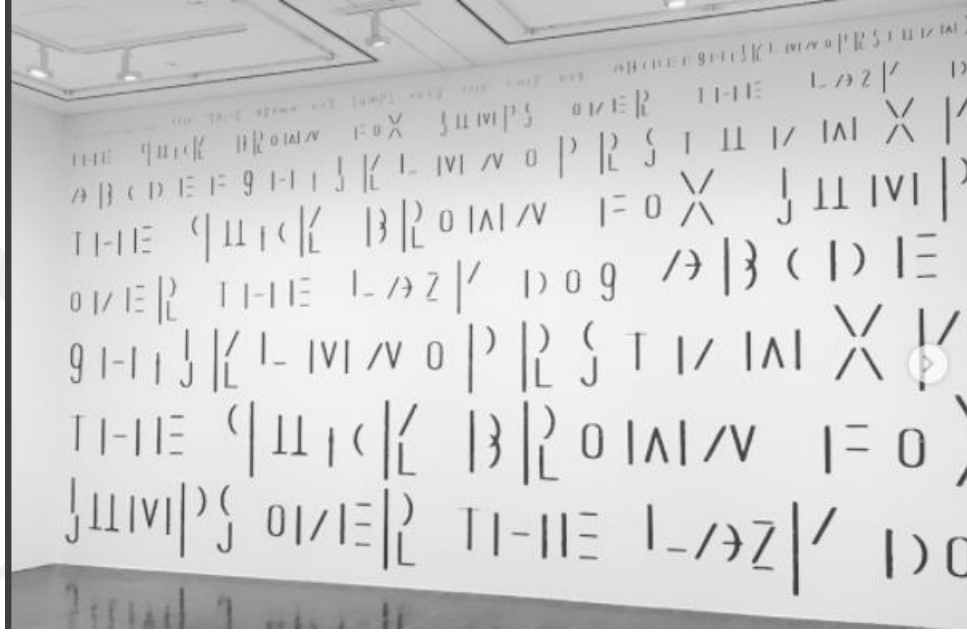 ABCDEFGHIJKLMNOPRSTUVW
THE QUICK BROWN FOX JUMPS OVER THE LAZY D
ABCDEFGHIJKLMNOPRSTUVWXY
THE QUICK BROWN FOX JUMP
OVER THE LAZY DOG ABCDE
GHIJKLMNOPRSTVWXY
THE QUICK BROWN FO
JUMPS OVER THE LAZY DO